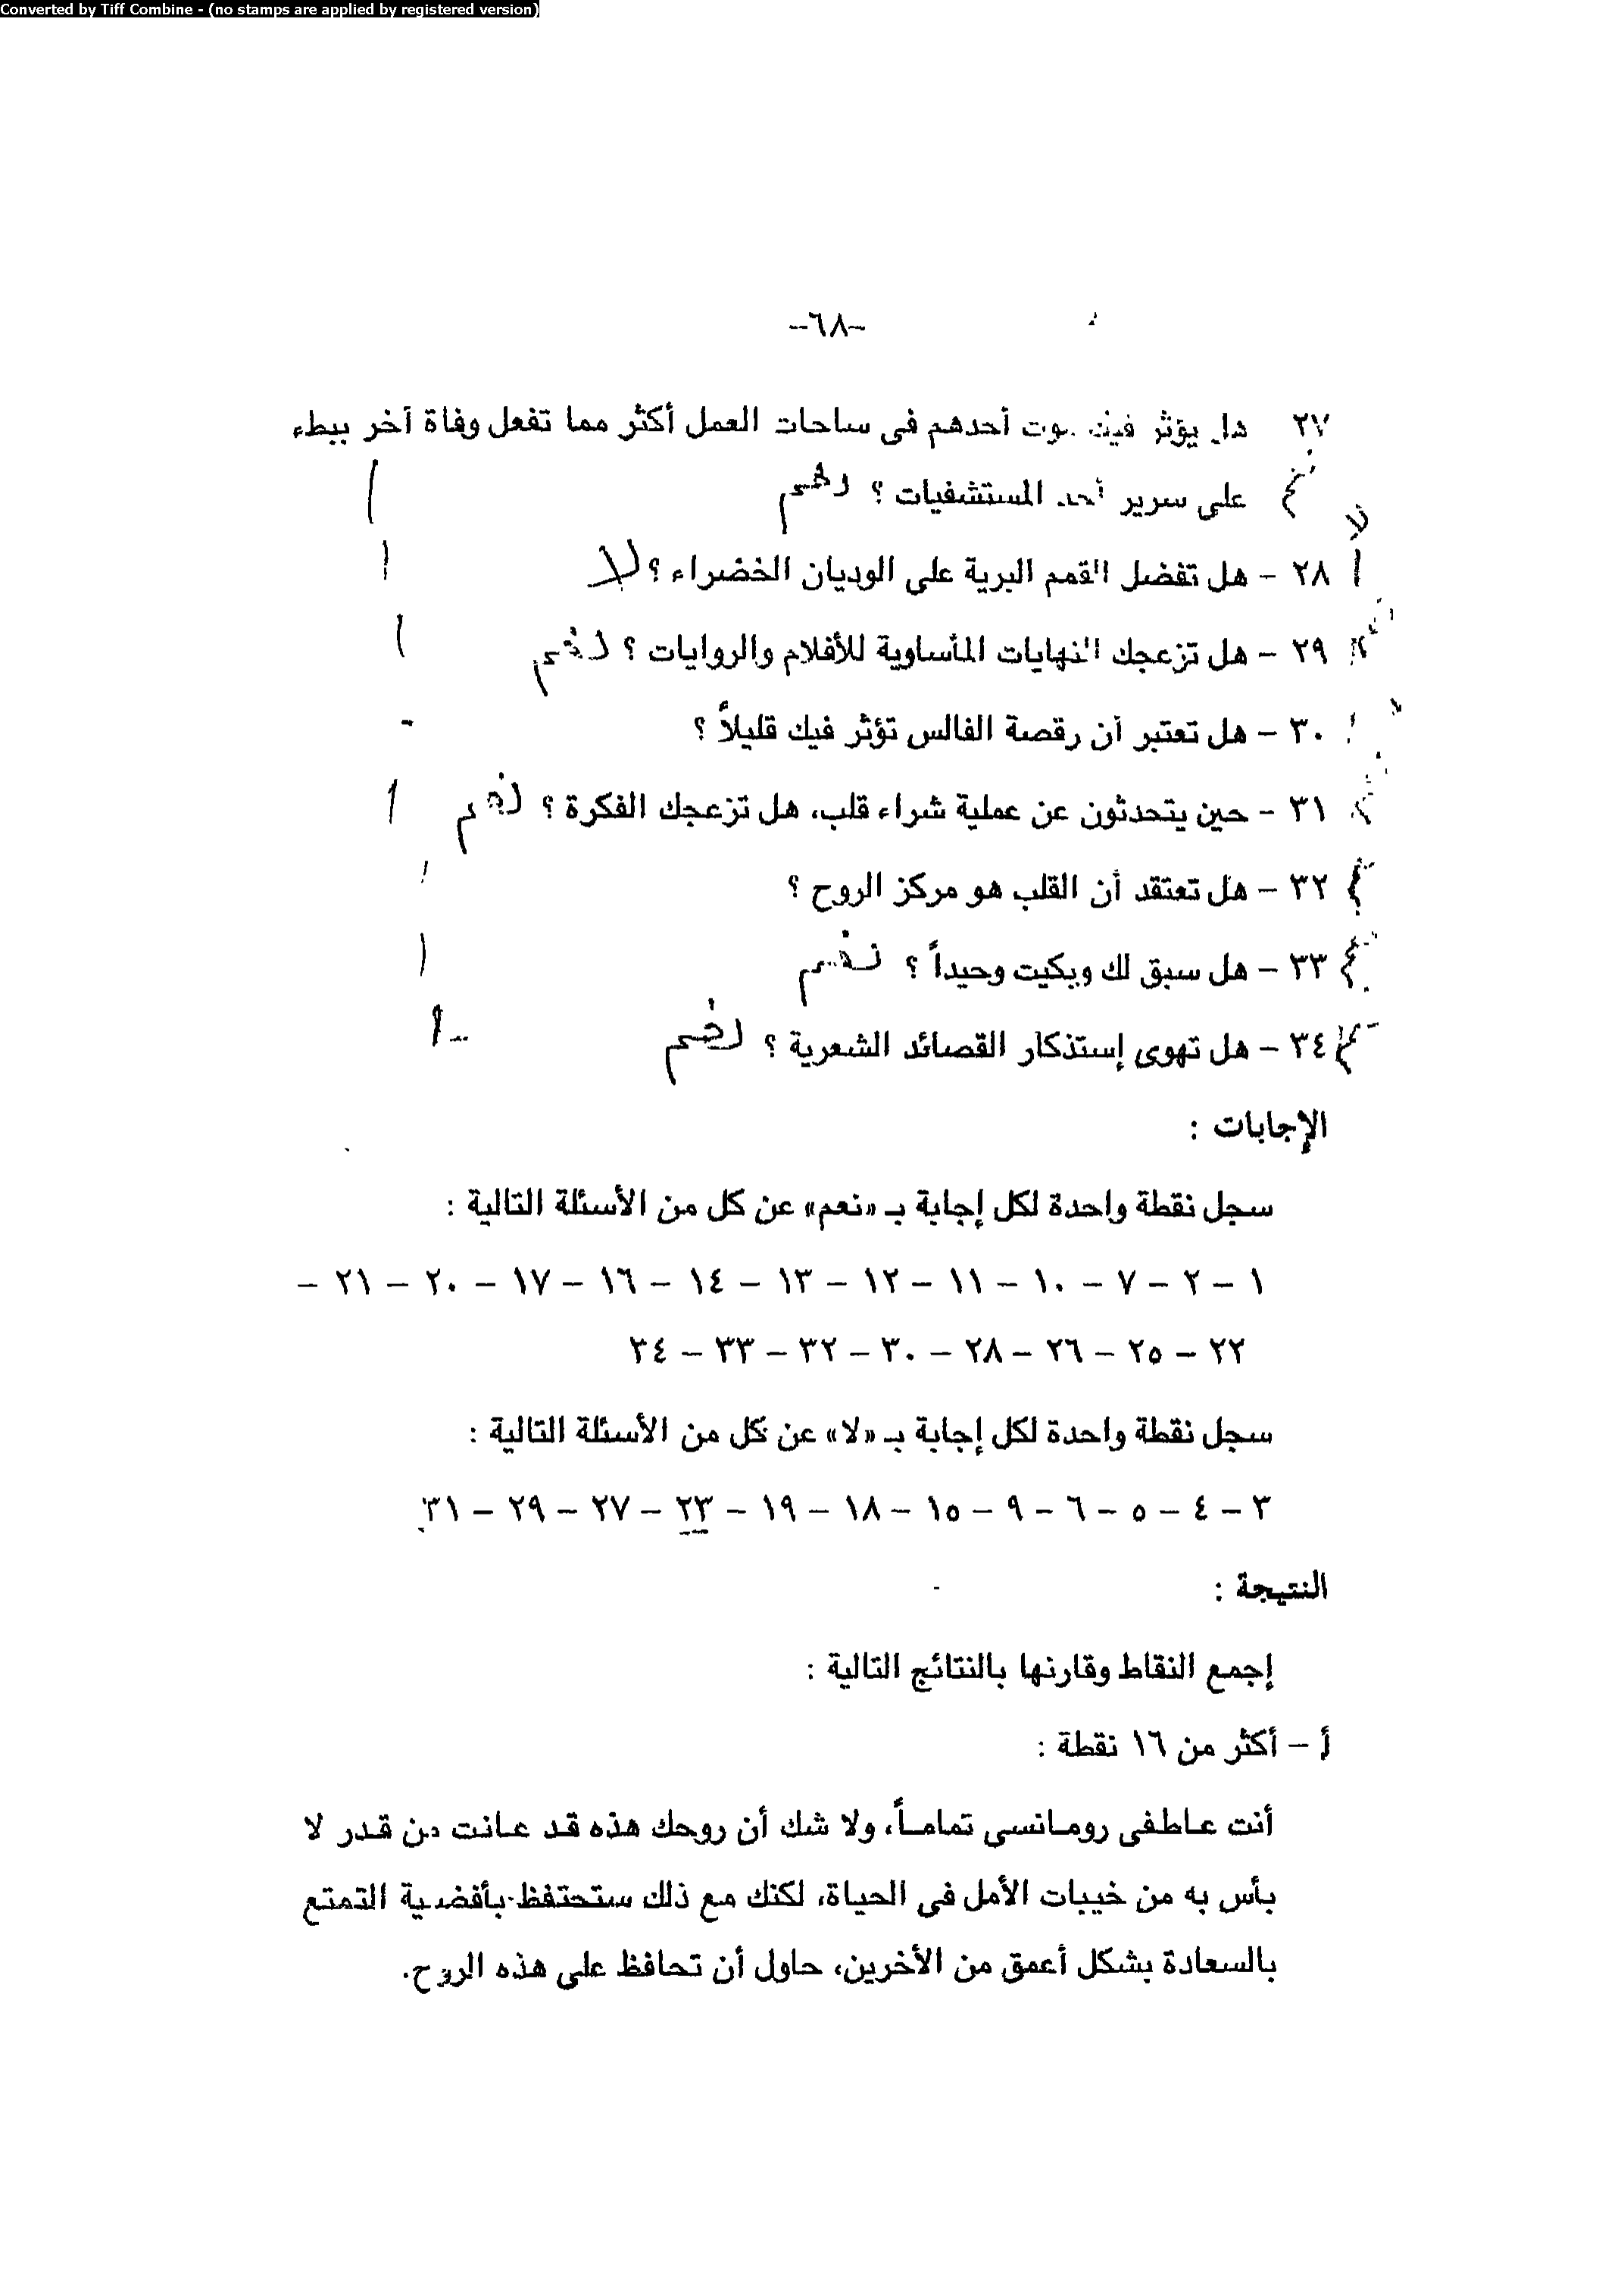 Converted by Tiff Combine - (no stamps are applied by registered version)
-٦٨-
٢٧ هل يؤثر فيك موت أحدهم فى ساحات العمل أكثر مما تفعل وفاة آخر ببطء
على سرير أحد المستشفيات ؟ نعم
لا
٢٨ - هل تفضل القمم البرية على الوديان الخضراء ؟ لا
٢٩ - هل تزعجك النهايات المأساوية للأفلام والروايات ؟ نعم
٣٠ - هل تعتبر أن رقصة الفالس تؤثر فيك قليلاً ؟
٣١ - حين يتحدثون عن عملية شراء قلب، هل تزعجك الفكرة ؟ نعم
٣٢ - هل تعتقد أن القلب هو مركز الروح ؟
٣٣ - هل سبق لك وبكيت وحيداً ؟ نعم
٣٤ - هل تهوى إستذكار القصائد الشعرية ؟ نعم
الإجابات :
سجل نقطة واحدة لكل إجابة بـ «نعم» عن كل من الأسئلة التالية :
١ - ٢ - ٧ - ١٠ - ١١ - ١٢ - ١٣ - ١٤ - ١٦ - ١٧ - ٢٠ - ٢١ -
٢٢ - ٢٥ - ٢٦ - ٢٨ - ٣٠ - ٣٢ - ٣٣ - ٣٤
سجل نقطة واحدة لكل إجابة بـ «لا» عن كل من الأسئلة التالية :
٣ - ٤ - ٥ - ٦ - ٩ - ١٥ - ١٨ - ١٩ - ٢٣ - ٢٧ - ٢٩ - ٣١
النتيجة :
إجمع النقاط وقارنها بالنتائج التالية :
أ - أكثر من ١٦ نقطة :
أنت عاطفى رومانسى تماماً، ولا شك أن روحك هذه قد عانت من قدر لا
بأس به من خيبات الأمل فى الحياة، لكنك مع ذلك ستحتفظ بأفضية التمتع
بالسعادة بشكل أعمق من الأخرين، حاول أن تحافظ على هذه الروح.